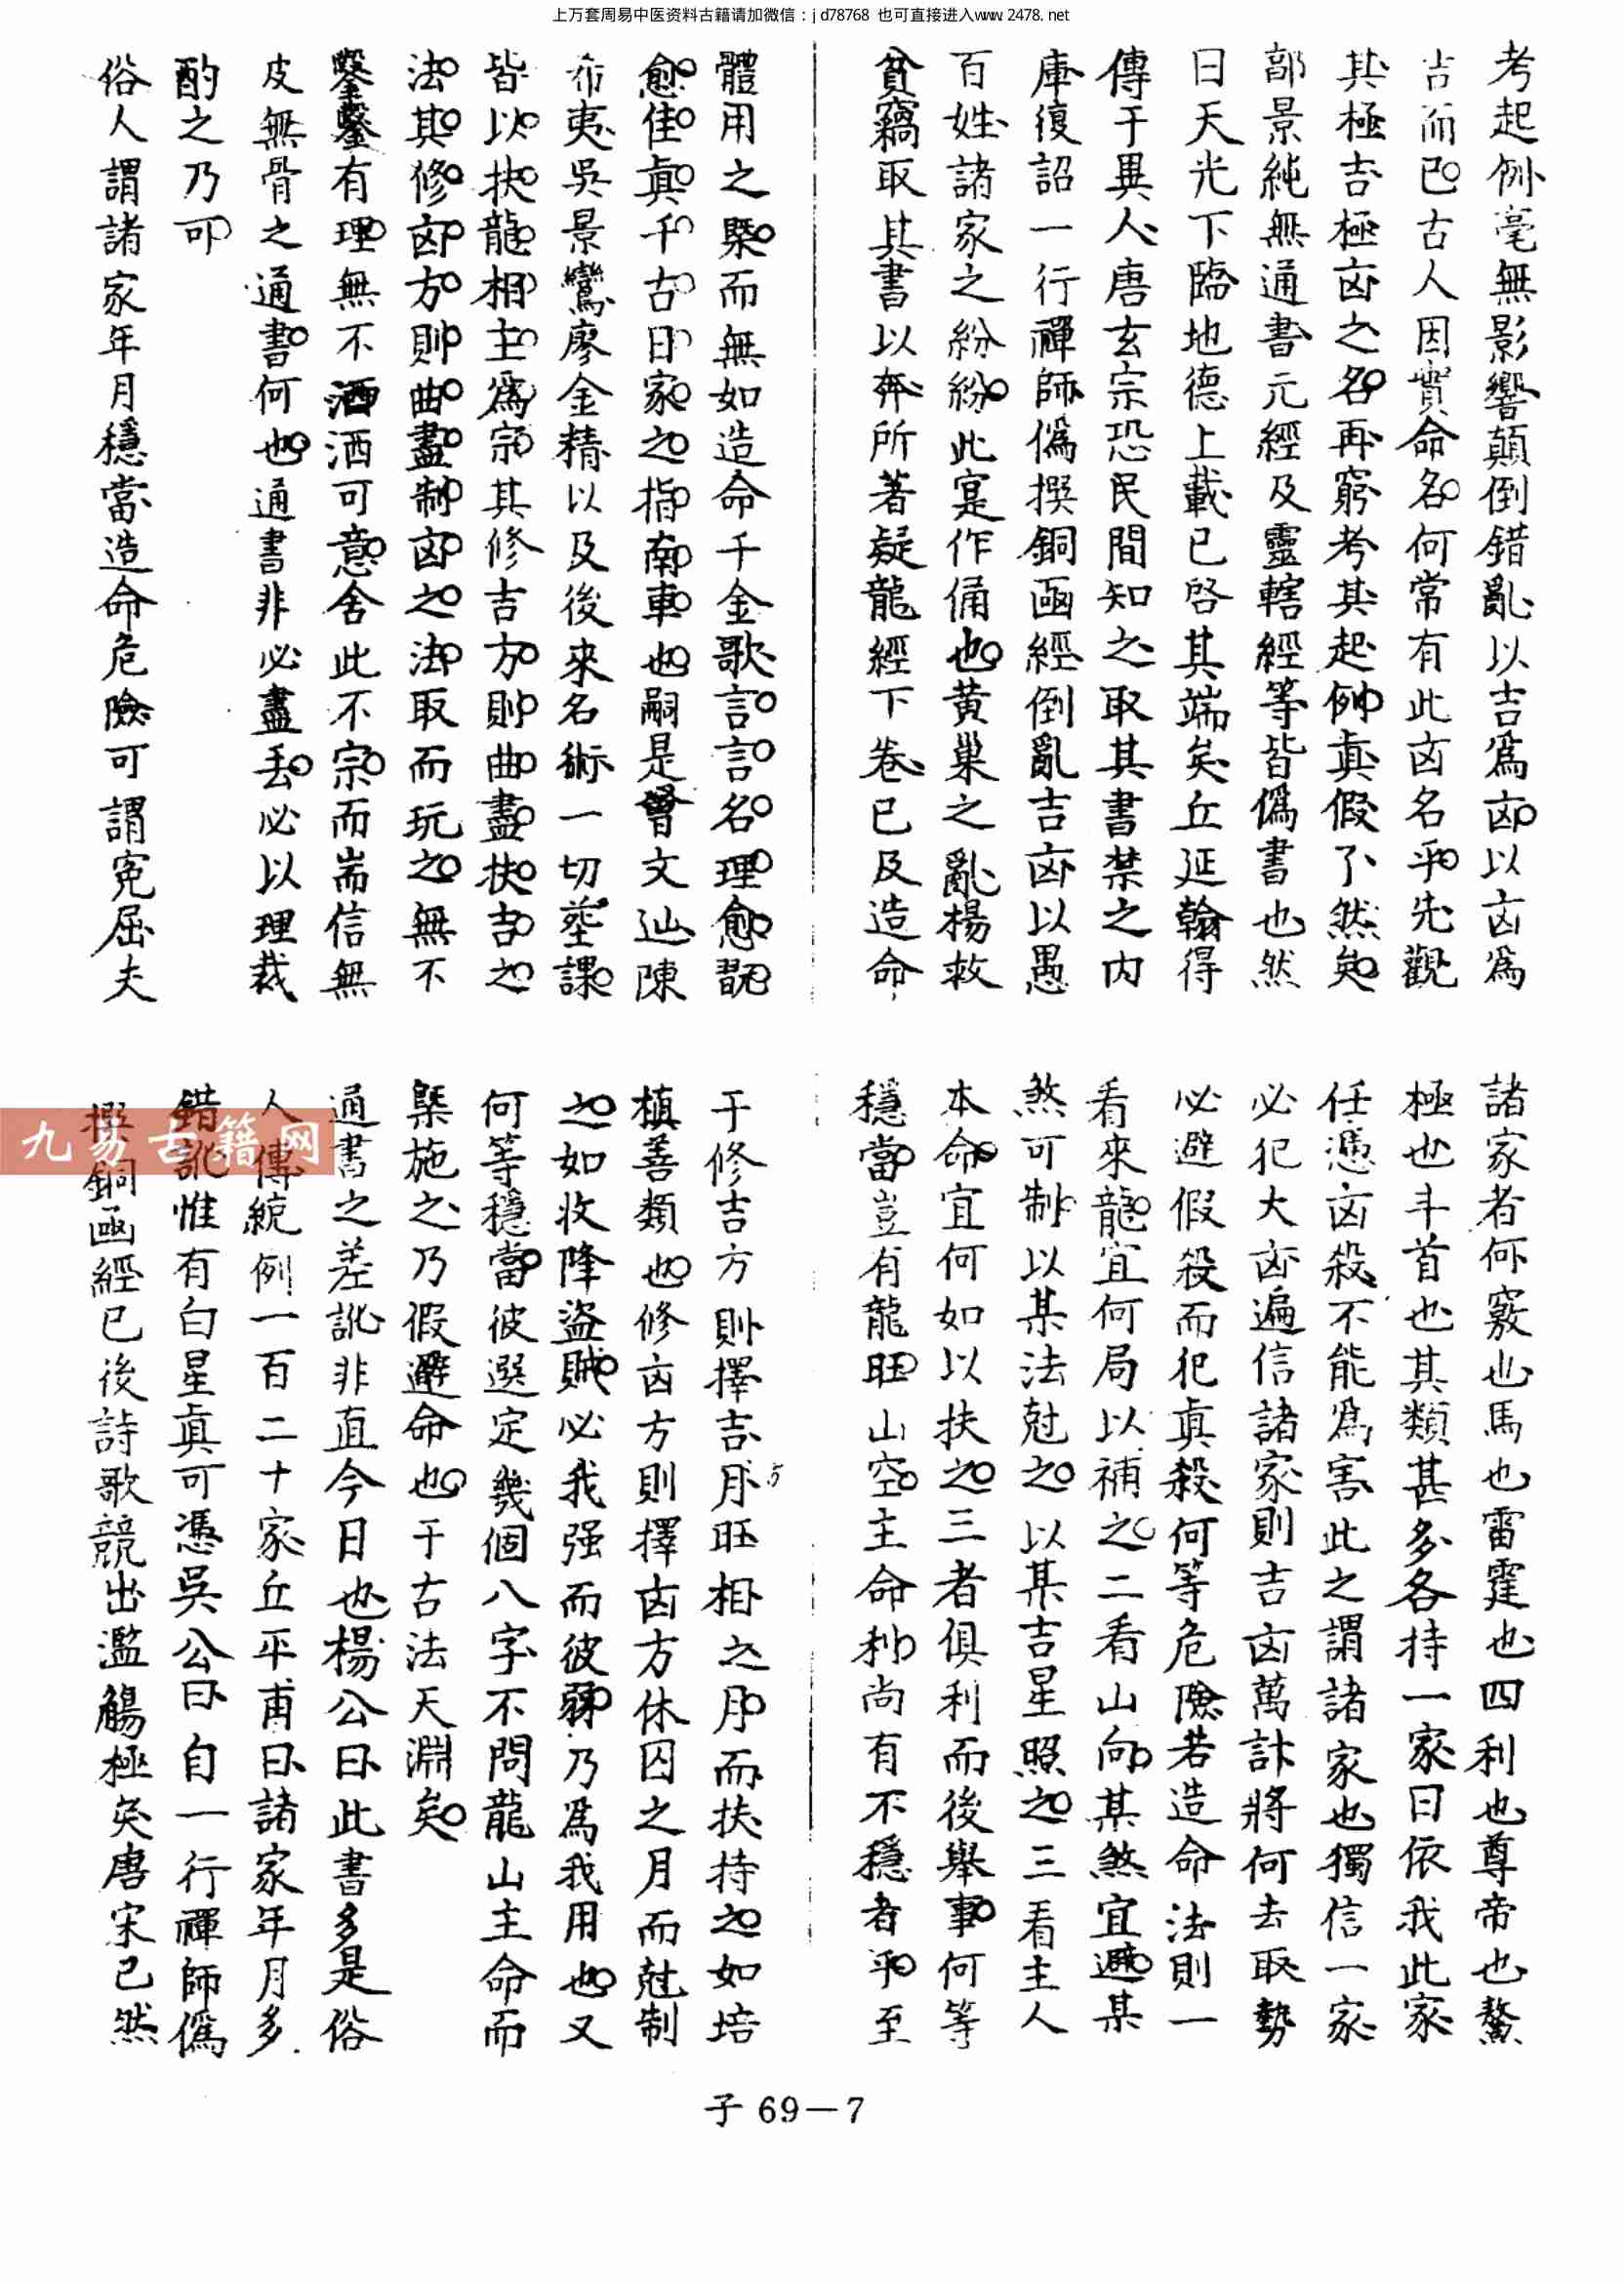 上万套周易中医资料古籍请加微信：jd78768 也可直接进入www.2478.net
考起例毫無影響顛倒錯亂以吉爲凶以凶爲
吉而已古人因實命名何常有此凶名乎先觀
其極吉極凶之名再窮考其起例真假了然矣
部景純無通書元經及靈轄經等皆僞書也然
曰天光下臨地德上載已啓其端矣丘延翰得
傳于異人唐玄宗恐民間知之取其書禁之内
庫復詔一行禪師僞撰銅函經倒亂吉凶以愚
百姓諸家之紛紛此寔作俑也黄巢之亂楊救
貧竊取其書以奔所著疑龍經下卷已及造命
體用之槩而無如造命千金歌言言名理愈翫
愈佳真千古日家之指南車也嗣是曾文辿陳
希夷吳景鸞廖金精以及後來名術一切塟課
皆以扶龍相主爲宗其修吉方則曲盡扶吉之
法其修凶方則曲盡制凶之法取而玩之無不
鑿鑿有理無不洒洒可意舍此不宗而耑信無
皮無骨之通書何也通書非必盡丢必以理裁
酌之乃可
俗人謂諸家年月穩當造命危險可謂寃屈夫
諸家者何竅也馬也雷霆也四利也尊帝也鰲
極也斗首也其類甚多各持一家曰依我此家
任憑凶殺不能爲害此之謂諸家也獨信一家
必犯大凶遍信諸家則吉凶萬訃將何去取勢
必避假殺而犯真殺何等危險若造命法則一
看來龍宜何局以補之二看山向某煞宜避某
煞可制以某法尅之以某吉星照之三看主人
本命宜何如以扶之三者俱利而後舉事何等
穩當豈有龍旺山空主命利尚有不穩者乎至
于修吉方則擇吉月旺相之月而扶持之如培
植善類也修凶方則擇凶方休囚之月而尅制
之如收降盜賊必我强而彼弱乃爲我用也又
何等穩當彼選定幾個八字不問龍山主命而
槩施之乃假避命也于古法天淵矣
通書之差訛非直今日也楊公曰此書多是俗
人傳統例一百二十家丘平甫曰諸家年月多
錯訛惟有白星真可憑吳公曰自一行禪師僞
撰銅函經已後詩歌競出濫觴極矣唐宋已然
九易古籍网
子 69—7